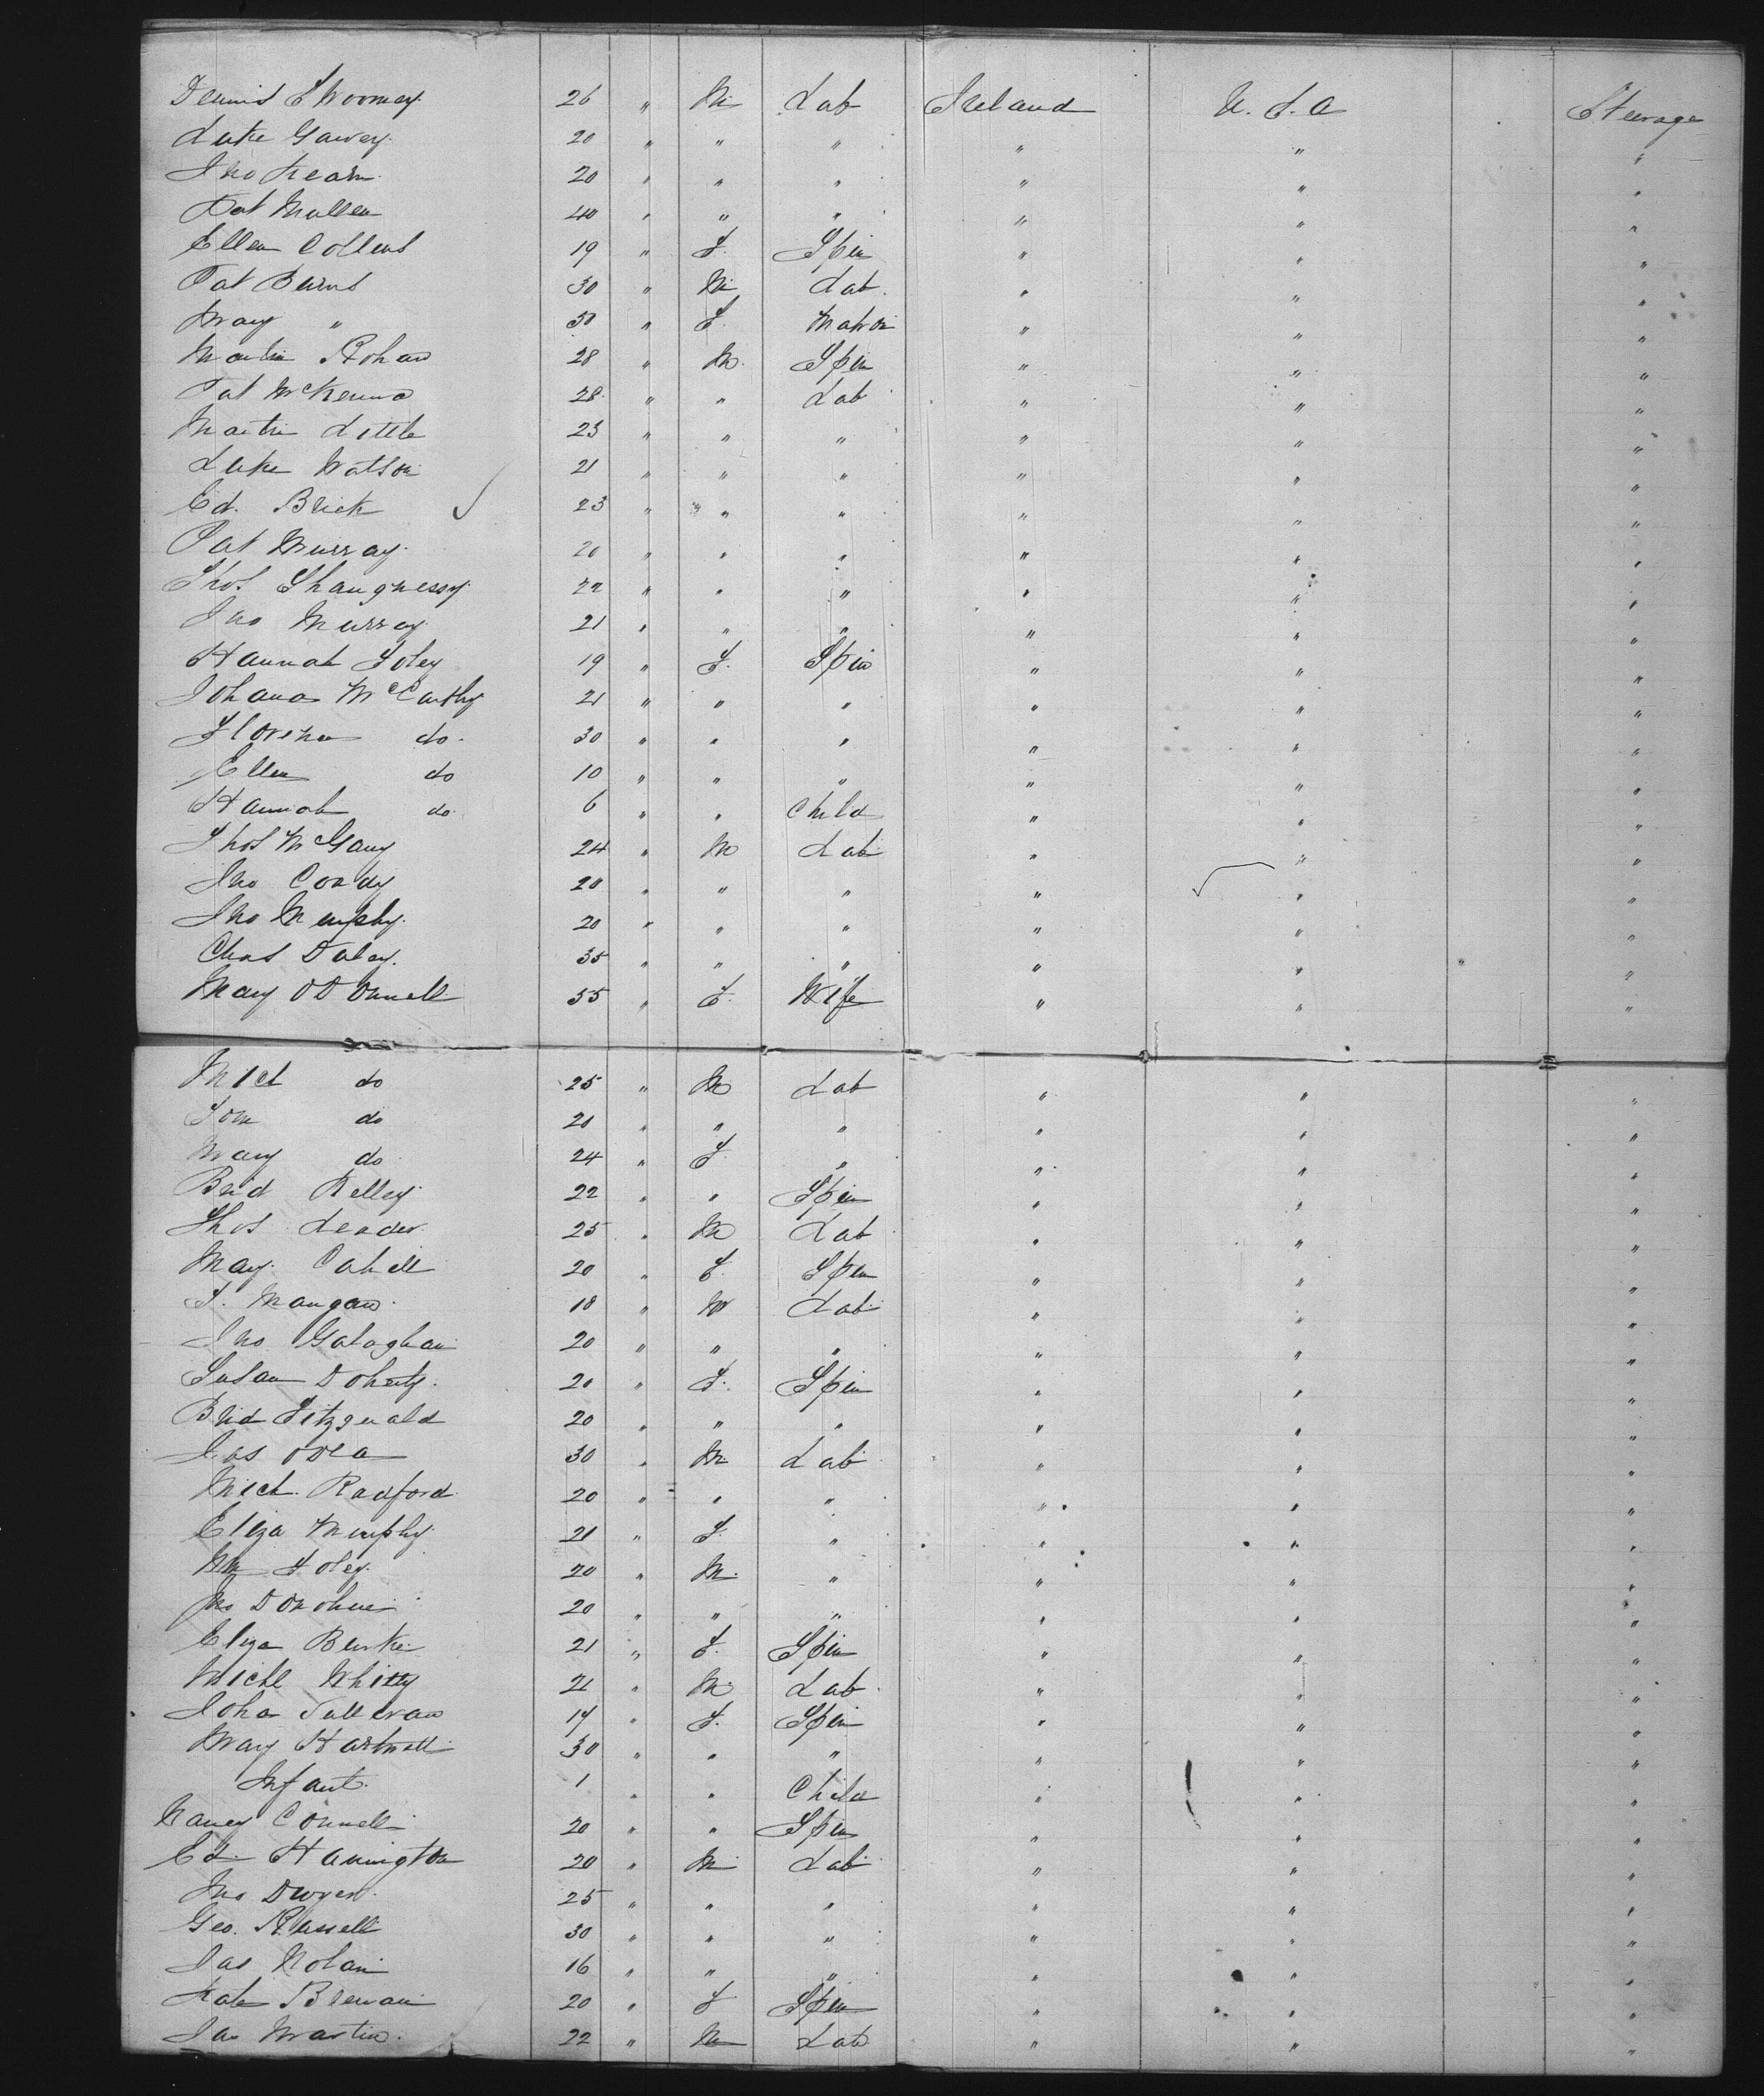 Dennis Twomey 26 " M Lab Ireland U.S.A Steerage
Luke Garvey 20 " " " " " "
Jno Kearn 20 " " " " " "
Pat Mullen 40 " " " " " "
Ellen Collens 19 " F. Spin " " "
Pat Burns 30 " M Lab " " "
Mary " 30 " F. Matron " " "
Martin Rohan 28 " M. Spin " " "
Pat McKenna 28 " " Lab " " "
Martin Little 23 " " " " " "
Luke Watson 21 " " " " " "
Ed. Brick 23 " " " " " "
Pat Murray 20 " " " " " "
Thos Shaugnessy 22 " " " " " "
Jno Murray 21 " " " " " "
Hannah Foley 19 " F. Spin " " "
Johana McCarthy 21 " " " " " "
Florena do. 30 " " " " " "
Ellen do 10 " " " " " "
Hannah do 6 " " Child " " "
Thos McGany 24 " M Lab " " "
Jno Condy 20 " " " " " "
Jno Murphy 20 " " " " " "
Chas Daley. 35 " " " " " "
Mary ODonnell 55 " F. Wife " " "
Mich do 25 " M Lab " " "
Tom do 20 " " " " " "
Mary do 24 " F " " " "
Brid Kelley 22 " " Spin " " "
Thos Leader 25 " M Lab " " "
May Cahill 20 " F. Spin " " "
T. Mangan 18 " M Lab " " "
Jno Galaghan 20 " " " " " "
Susan Doherty. 20 " F. Spin " " "
Brid Fitzgerald 20 " " " " " "
Jas ODea 30 " M Lab " " "
Mich. Radford 20 " " " " " "
Eliza Murphy 21 " F. " " " "
Wm Foley. 20 " M. " " " "
Jno Donohue 20 " " " " " "
Eliza Burke 21 " F. Spin " " "
Michl Whitty 21 " M. Lab " " "
Joha Sullivan 17 " F. Spin " " "
Mary Hartnett 30 " " " " " "
Infant. 1 " " Child " " "
Nancy Connell 20 " " Spin " " "
Ed. Hanington 20 " M Lab " " "
Jno Dwyer 25 " " " " " "
Geo. Russell 30 " " " " " "
Jas Nolan 16 " " " " " "
Kate Brenan 20 " F Spin " " "
Jas Martin. 22 " M Lab " " "